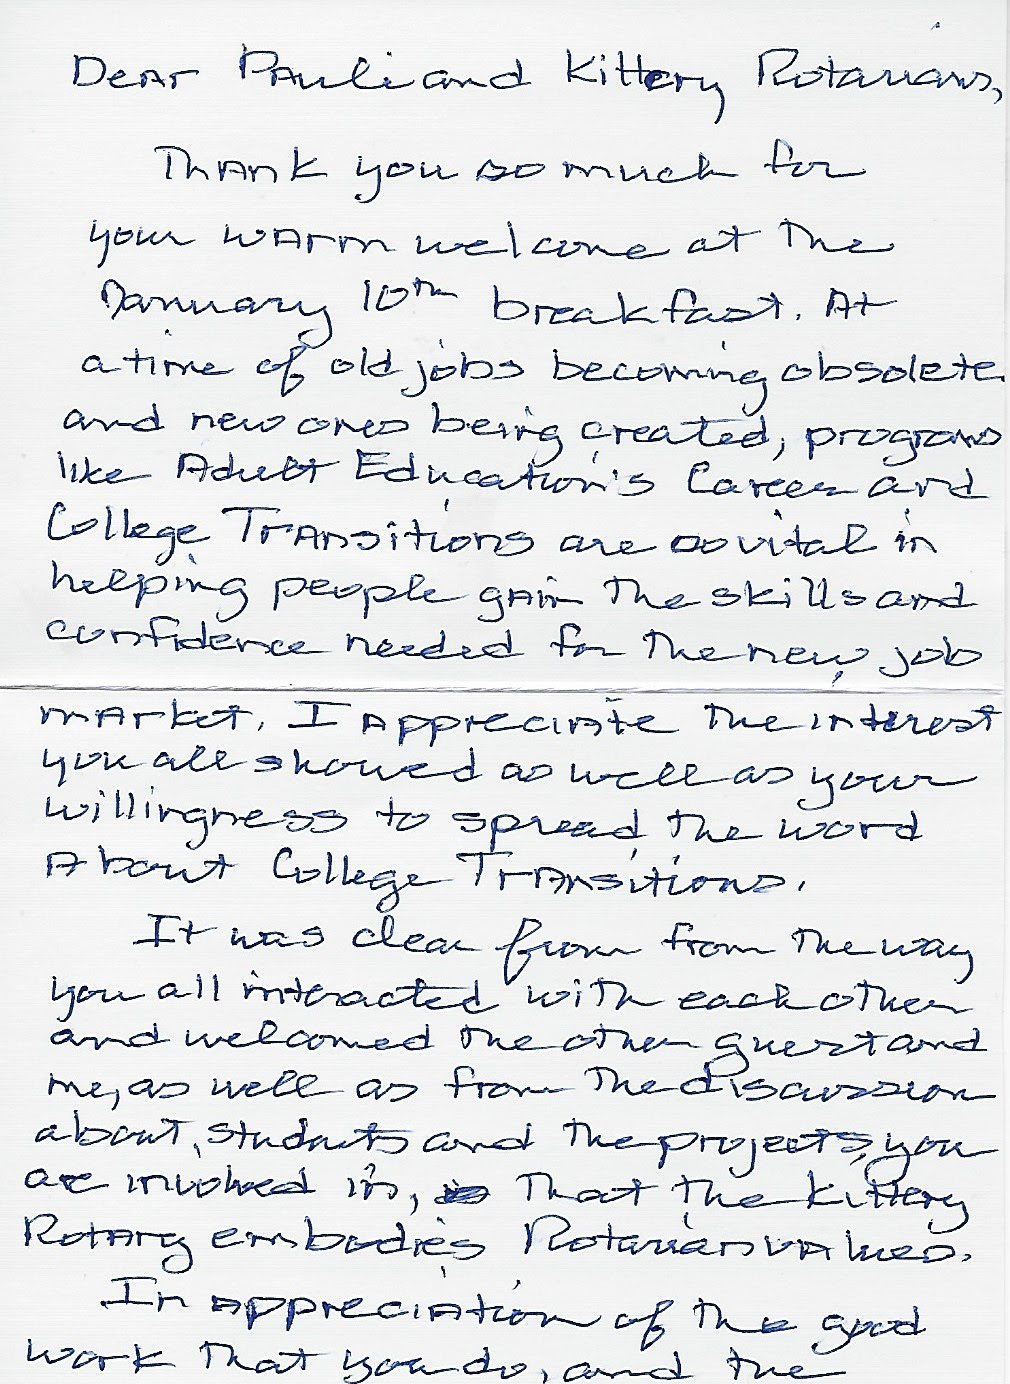 Dear Pauli and Kittery Rotarians,
Thank you so much for
your warm welcome at the
January 10th breakfast. At
a time of old jobs becoming obsolete
and new ones being created, programs
like Adult Education's Career and
College Transitions are so vital in
helping people gain the skills and
confidence needed for the new job
market. I appreciate the interest
you all showed as well as your
willingness to spread the word
About College Transitions.
It was clear from from the way
you all interacted with each other
and welcomed the other guest and
me, as well as from the discussion
about students and the projects you
are involved in, that the Kittery
Rotary embodies Rotarian values.
In appreciation of the good
work that you do, and the